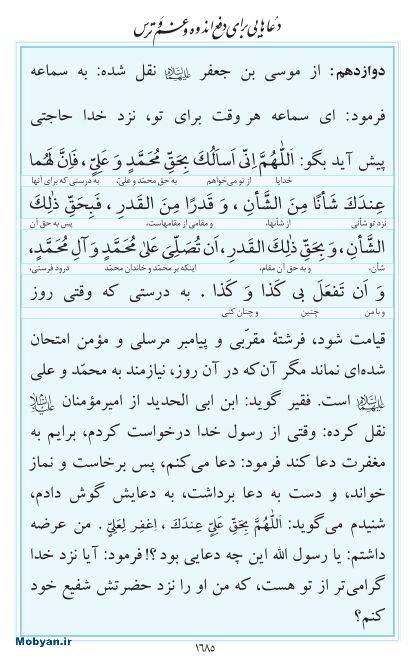 دعاهایی برای دفع اندوه و غم و ترس
دوازدهم: از موسی بن جعفر علیهما السلام نقل شده: به سماعه
فرمود: ای سماعه هر وقت برای تو، نزد خدا حاجتی
پیش آید بگو: اَللّٰهُمَّ اِنّى اَسأَلُكَ بِحَقِّ مُحَمَّدٍ وَ عَلِيٍّ، فَاِنَّ لَهُما
خدایا از تو می‌خواهم به حق محمّد و علیّ، به درستی که برای آنها
عِندَكَ شَأنًا مِنَ الشَّأنِ ، وَ قَدرًا مِنَ القَدرِ ، فَبِحَقِّ ذٰلِكَ
نزد تو شأنی از شأنها، و مقامی از مقامهاست، پس به حق آن
الشَّأنِ، وَ بِحَقِّ ذٰلِكَ القَدرِ، اَن تُصَلِّىَ عَلىٰ مُحَمَّدٍ وَ آلِ مُحَمَّدٍ،
شأن، و به حق آن مقام، اینکه بر محمّد و خاندان محمّد درود فرستی،
وَ اَن تَفعَلَ بى كَذا وَ كَذا . به درستی که وقتی روز
و با من چنین و چنان کنی
قیامت شود، فرشتهٔ مقرّبی و پیامبر مرسلی و مؤمن امتحان
شده‌ای نماند مگر آن‌که در آن روز، نیازمند به محمّد و علی
علیهما السلام است. فقیر گوید: ابن ابی الحدید از امیرمؤمنان علیه السلام
نقل کرده: وقتی از رسول خدا درخواست کردم، برایم به
مغفرت دعا کند فرمود: دعا می‌کنم، پس برخاست و نماز
خواند، و دست به دعا برداشت، به دعایش گوش دادم،
شنیدم می‌گوید: اَللّٰهُمَّ بِحَقِّ عَلِيٍّ عِندَكَ ، اِغفِر لِعَلِيٍّ . من عرضه
داشتم: یا رسول الله این چه دعایی بود؟! فرمود: آیا نزد خدا
گرامی‌تر از تو هست، که من او را نزد حضرتش شفیع خود
کنم؟
Mobyan.ir
۱۶۸۵